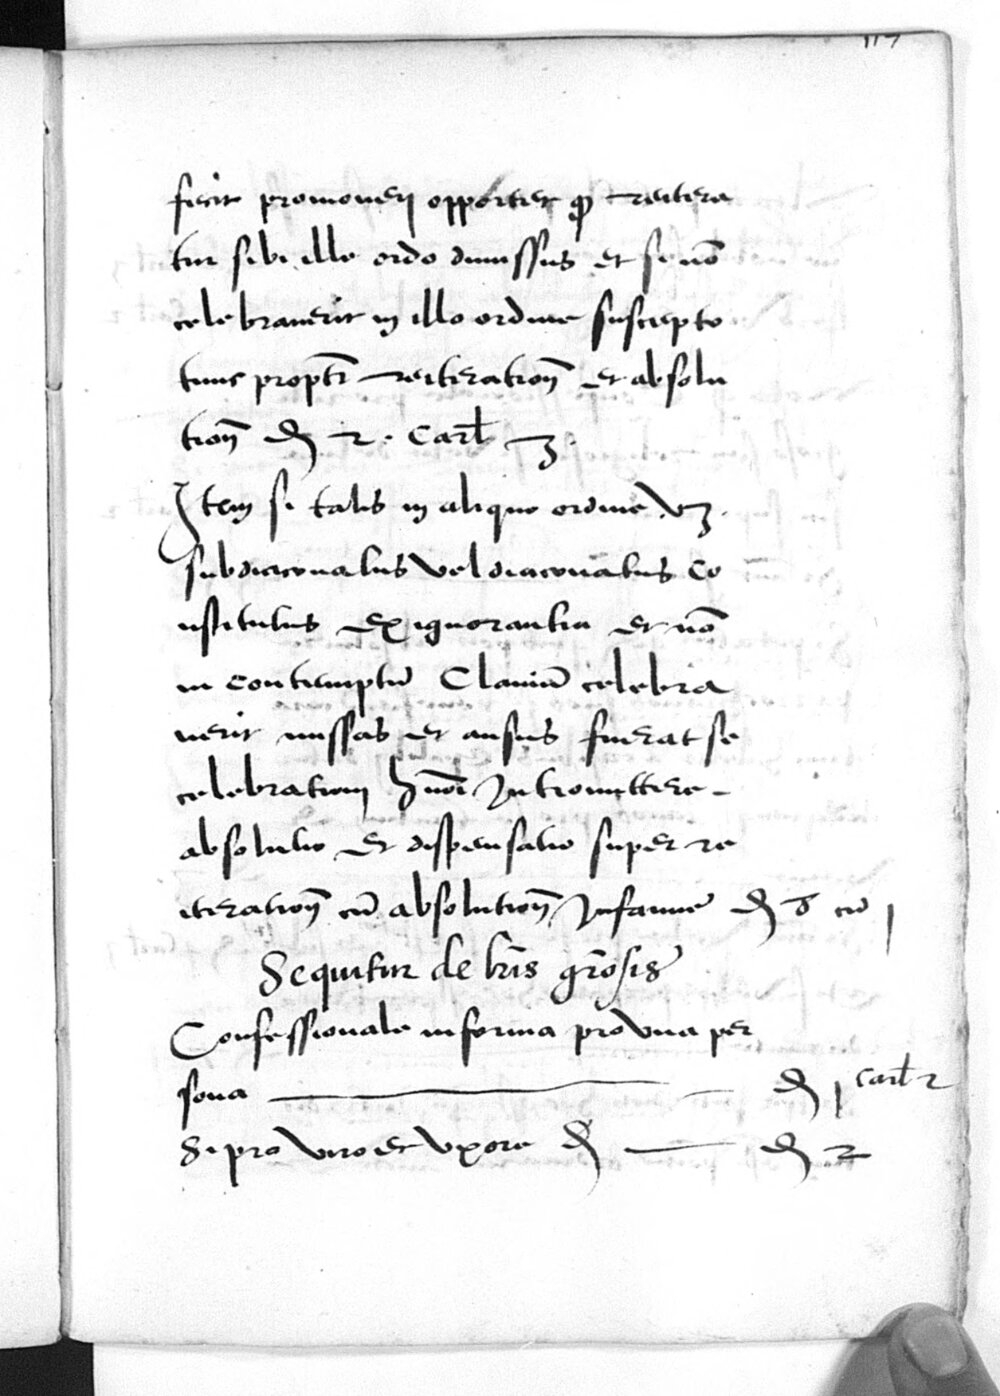 117
fecit promoueri opportet ꝙ reitera
tur sibi ille ordo dimissus et si nō
celebrauerit in illo ordine suscepto
tunc propt̄ reiterationē et absolu
tionē d 2. Carl 3.
Item si talis in aliquo ordine vz.
subdiaconatus vel diaconatus co
nstitutus ex ignorantia et nō
in contemptū Clauiū celebra
uerit missas et ausus fuerat se
celebrationi hmōi Intromittere
absolutio et dispensatio super re
iterationē cū absolutionē Infamie d 8 cū 1
Sequitur de lr̄is grōsis
Confessionale in forma pro vna per
sona d 1 Carl 2
Si pro viro et vxore d d 2